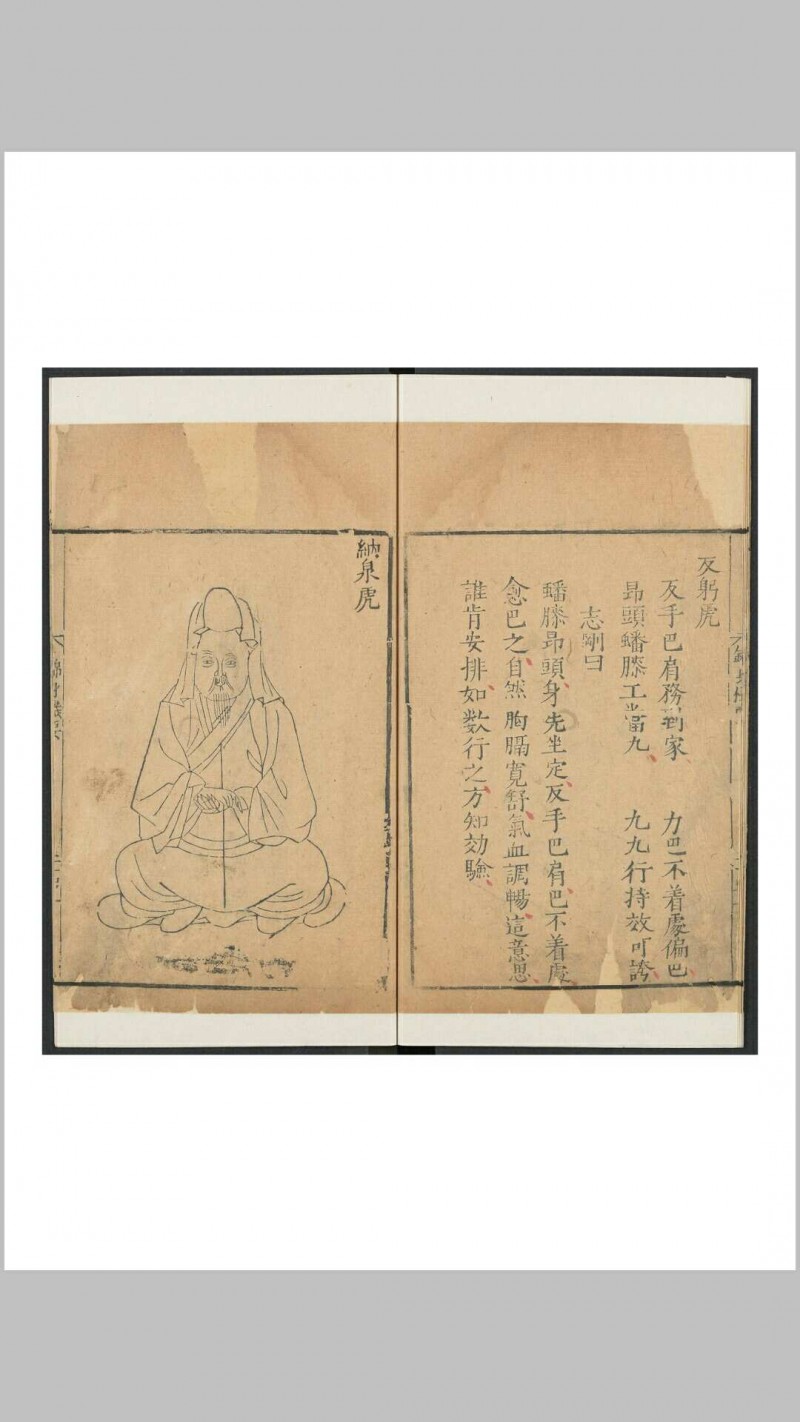 反躬虎
反手巴肩務到家 力巴不着處偏巴
昂頭蟠膝工當九 九九行持效可誇
志剛曰
蟠膝昂頭身先坐定反手巴肩巴不着處
愈巴之自然胸膈寬舒氣血調暢這意思
誰肯安排如數行之方知効驗
納泉虎